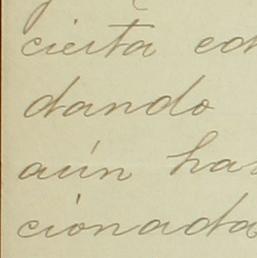 cierta
dando
aún
cionada